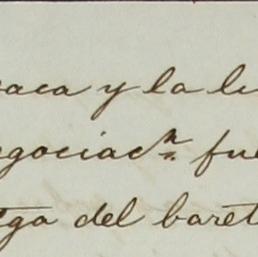 aca y la lu
egociacn. fue
ga del baret